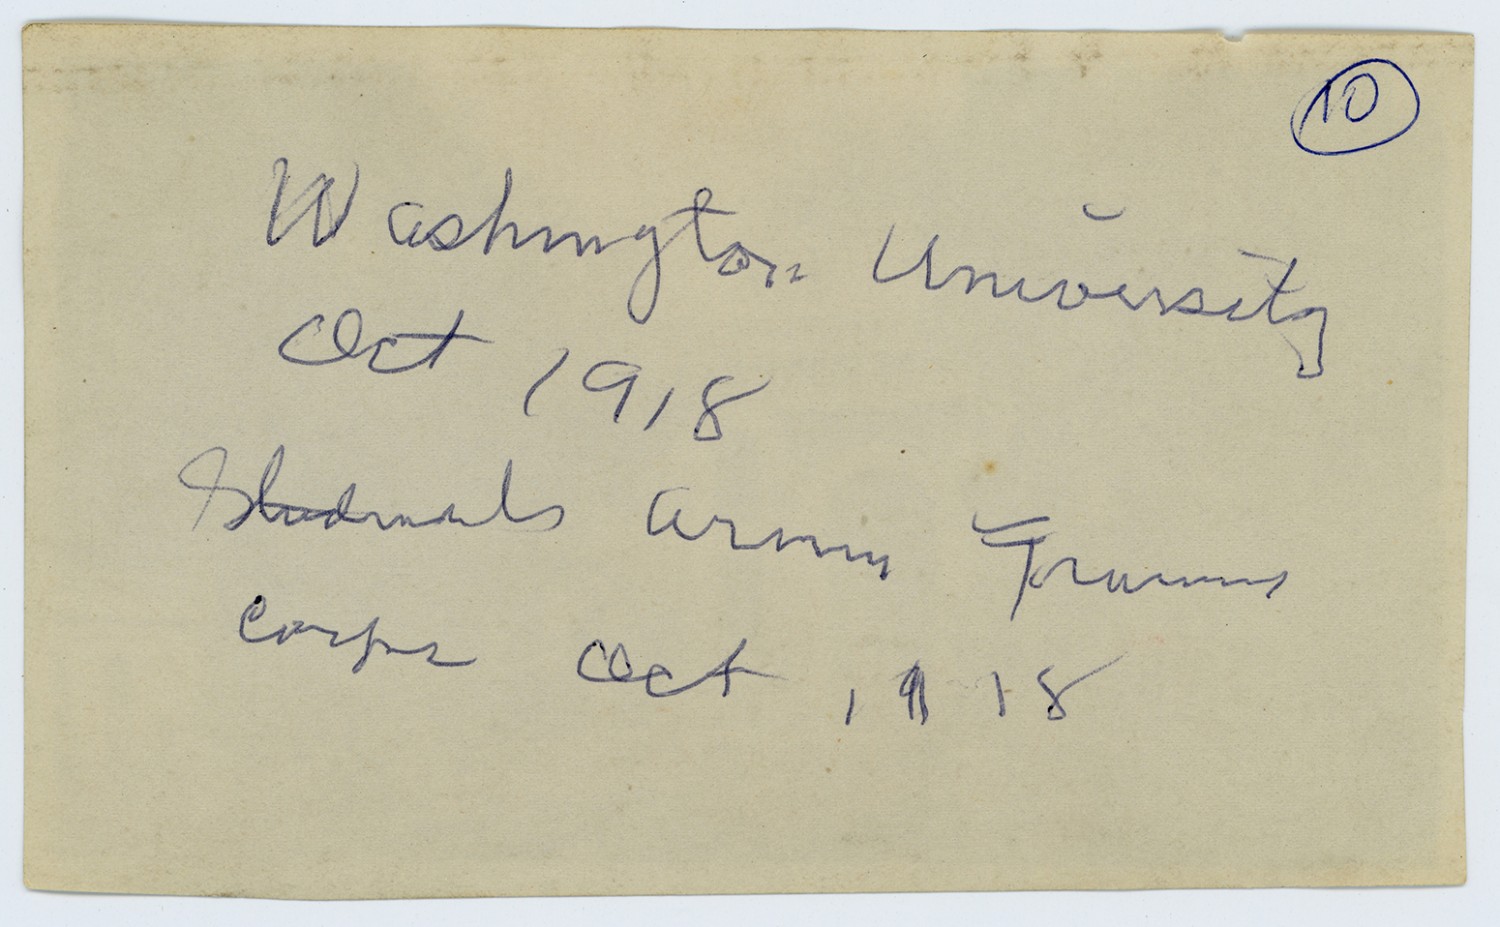 10
Washington University
Oct 1918
Students Army Training
Corps Oct 1918